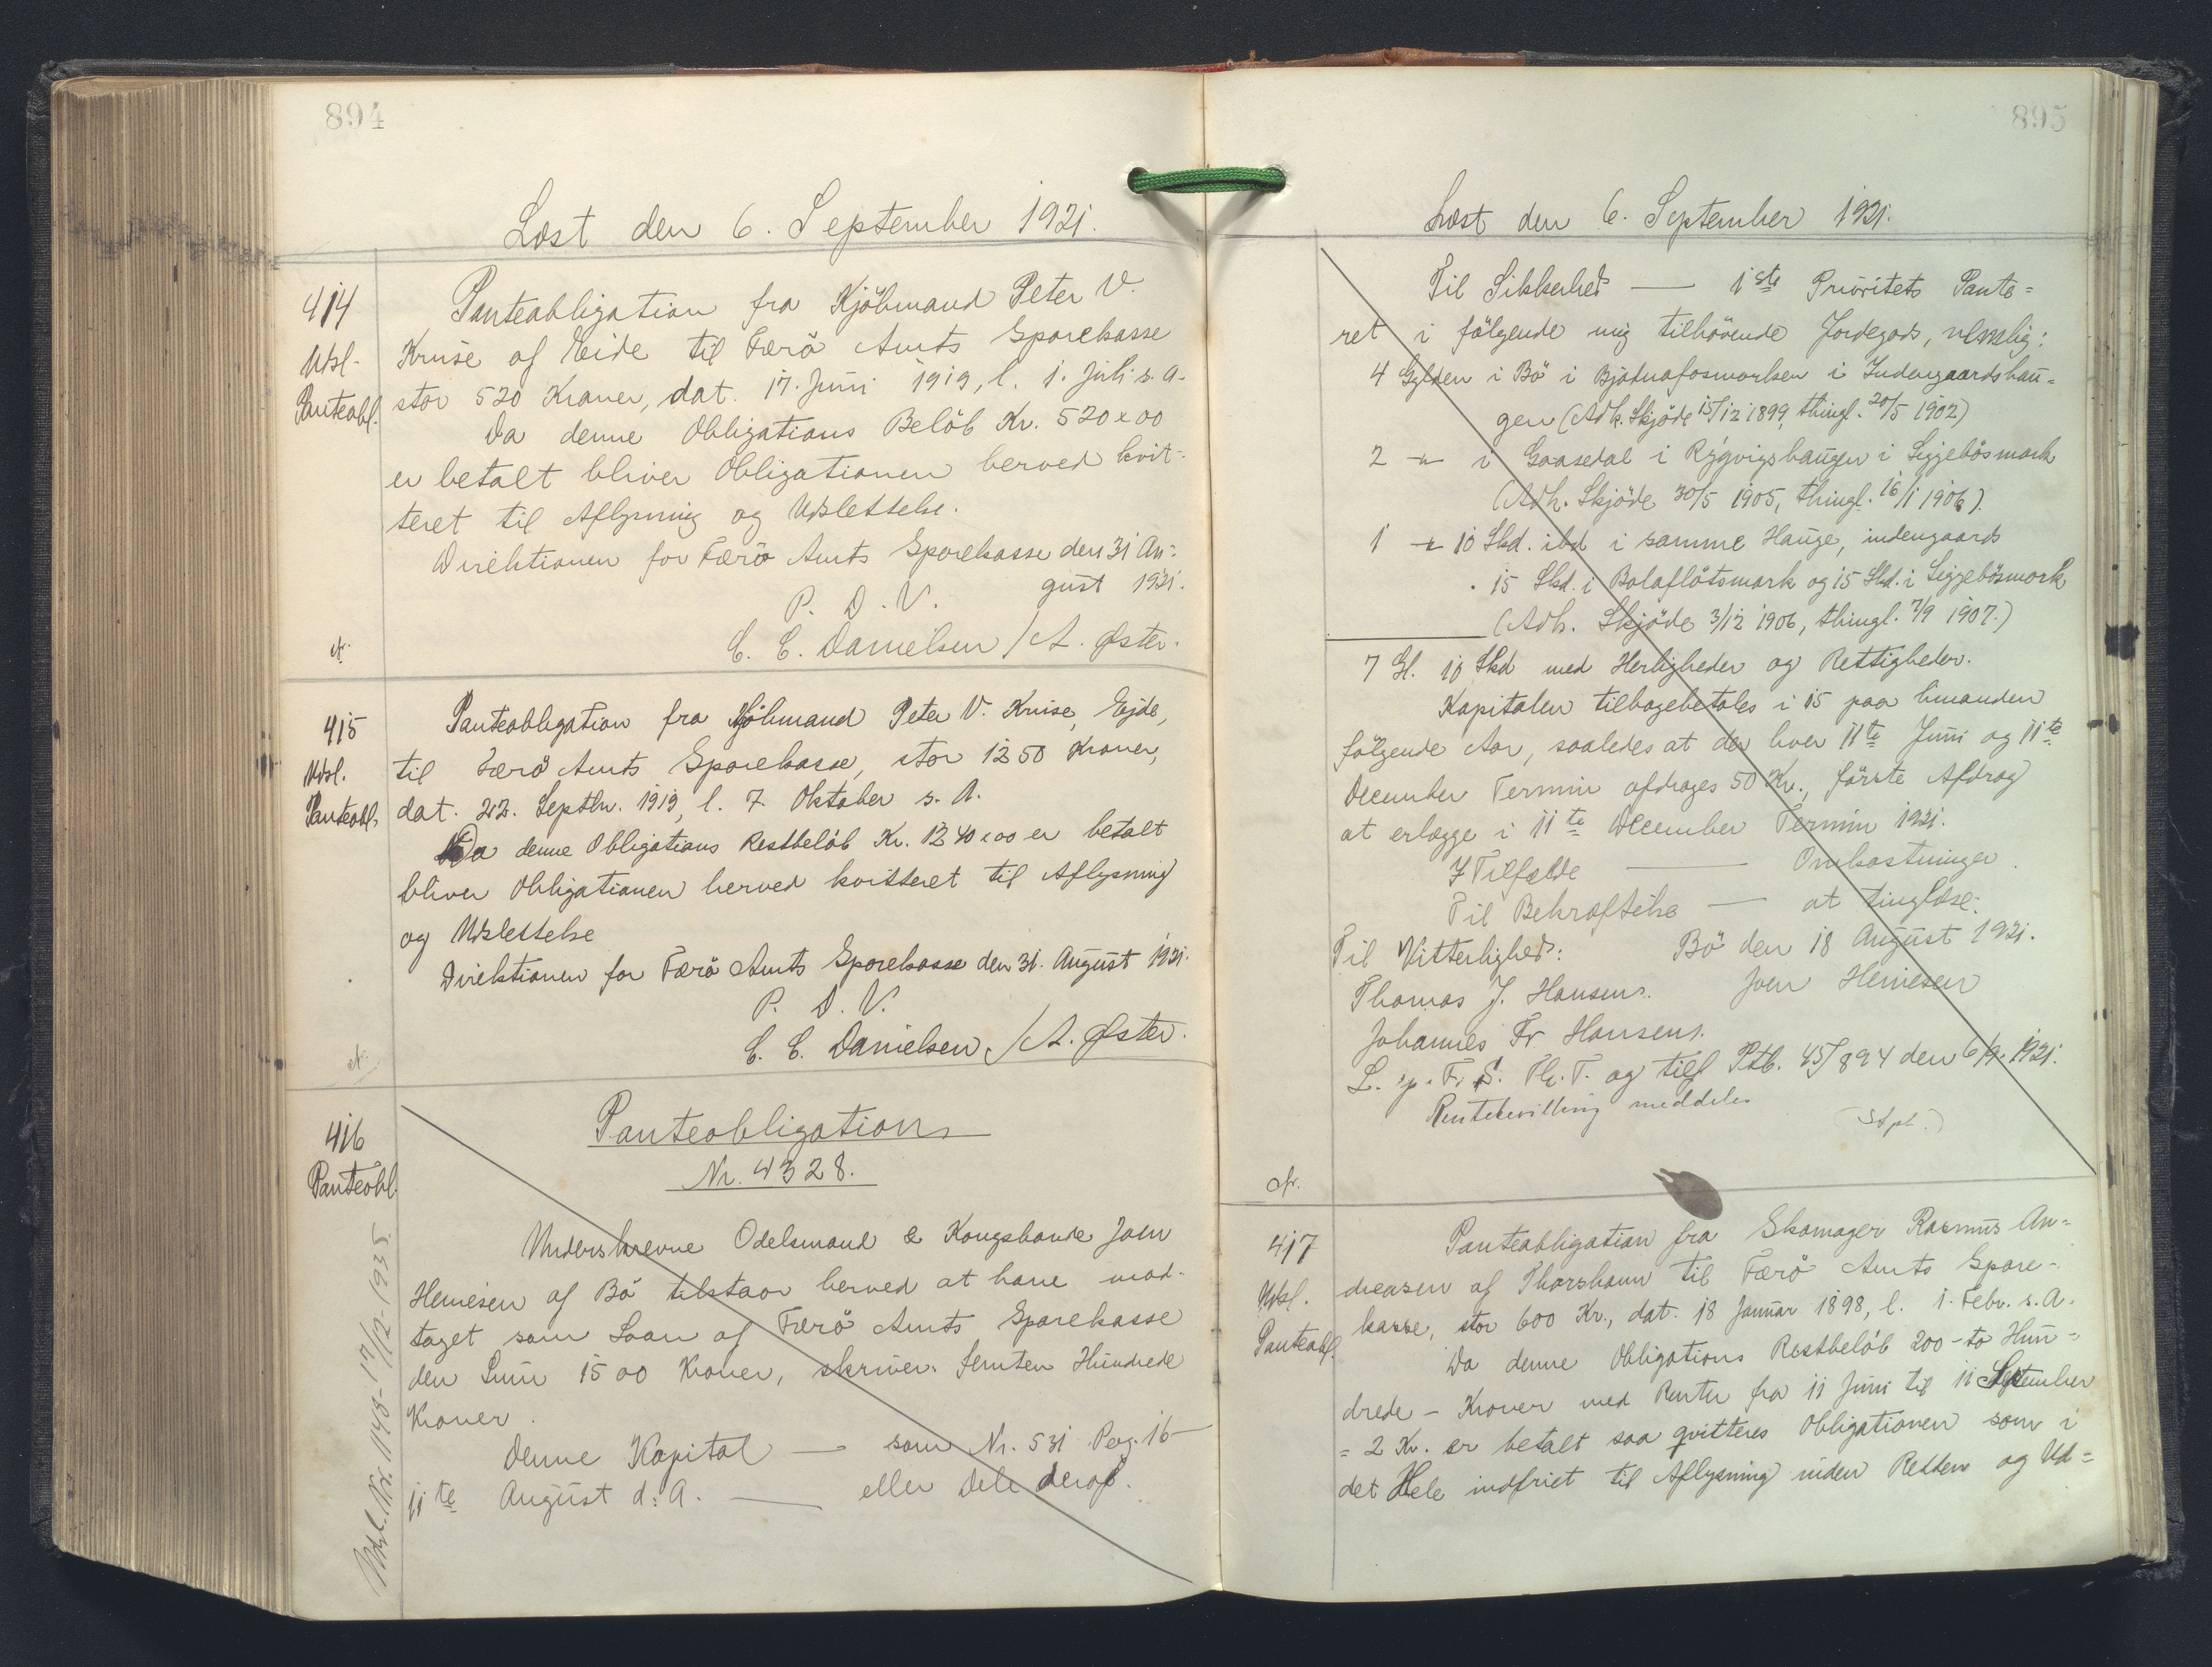 894
Læst den 6. September 1921.
414
Udsl.
Panteobl.
Panteobligation fra Kjöbmand Peter V.
Kruse af Eide til Færö Amts Sparekasse
stor 520 Kroner, dat. 17. Juni 1919, l. 1. Juli s. A.
Da denne Obligations Belöb Kr. 520 x 00
er betalt bliver Obligationen herved kvit-
teret til Aflysning og Udslettelse.
Direktionen for Færö Amts Sparekasse den 31 Au-
gust 1921.
P. D. V.
C. C. Danielsen / A. Øster.
415
Udsl.
Panteobl.
Panteobligation fra Kjöbmand Peter V. Kruse, Ejde,
til Færö Amts Sparekasse, stor 1250 Kroner,
dat. 22. Septbr. 1919, l. 7. Oktober s. A.
Da denne Obligations Restbelöb Kr. 1240 x 00 er betalt
bliver Obligationen herved kvitteret til Aflysning
og Udslettelse
Direktionen for Færö Amts Sparekasse den 31. August 1921.
P. D. V.
C. C. Danielsen / A. Øster.
416
Panteobl.
Udsl. Nr. 1148 - 17/12 - 1935.
Panteobligation
Nr. 4328.
Underskrevne Odelsmand & Kongsbonde Joen
Heinesen af Bö tilstaar herved at have mod-
taget som Laan af Færö Amts Sparekasse
den Sum 1500 Kroner, skriver: Femten Hundrede
Kroner.
Denne Kapital — som Nr. 531 Pag. 16 —
11te August d. A. — eller Dele deraf.
895
Læst den 6. September 1921.
Til Sikkerhed — 1ste Prioritets Pante=
ret i fölgende mig tilhörende Jordegods, nemlig:
4 Gylden i Bö i Bjotnafosmarken i Indengaardshau=
gen (Adk. Skjöde 15/12 1899, thingl. 20/5 1902)
2 — " — i Gaasedal i Rygvigshaugen i Liggjebösmark
(Adk. Skjöde 30/5 1905, thingl. 16/1 1906).
1 — " — 10 Skd. ibd i samme Hauge, indengaards
15 Skd. i Bolaflötsmark og 15 Skd. i Liggjebösmark
(Adk. Skjöde 3/12 1906, thingl. 7/9 1907.)
7 Gl. 10 Skd med Herligheder og Rettigheder.
Kapitalen tilbagebetales i 15 paa hinanden
fölgende Aar, saaledes at der hver 11te Juni og 11te
December Termin afdrages 50 Kr., förste Afdrag
at erlægge i 11te December Termin 1921.
I Tilfælde — Omkostninger.
Til Bekræftelse — at tinglæse.
Til Vitterlighed: Bö den 18 August 1921.
Thomas J. Hansen. Joen Heinesen
Johannes Fr Hansen.
L. p. F. S. Th. T. og tilf Ptb. 45/894 den 6/9. 1921.
Rentebevilling meddeles
(Stpl.)
417
Udsl.
Panteobl.
Panteobligation fra Skomager Rasmus An=
dreasen af Thorshavn til Færö Amts Spare-
kasse, stor 600 Kr., dat. 18 Januar 1898, l. 1. Febr. s. A.
Da denne Obligations Restbelöb 200 - to Hun=
drede - Kroner med Renter fra 11 Juni til 11 September
= 2 Kr. er betalt saa qvitteres Obligationen som i
det Hele indfriet til Aflysning inden Retten og Ud=